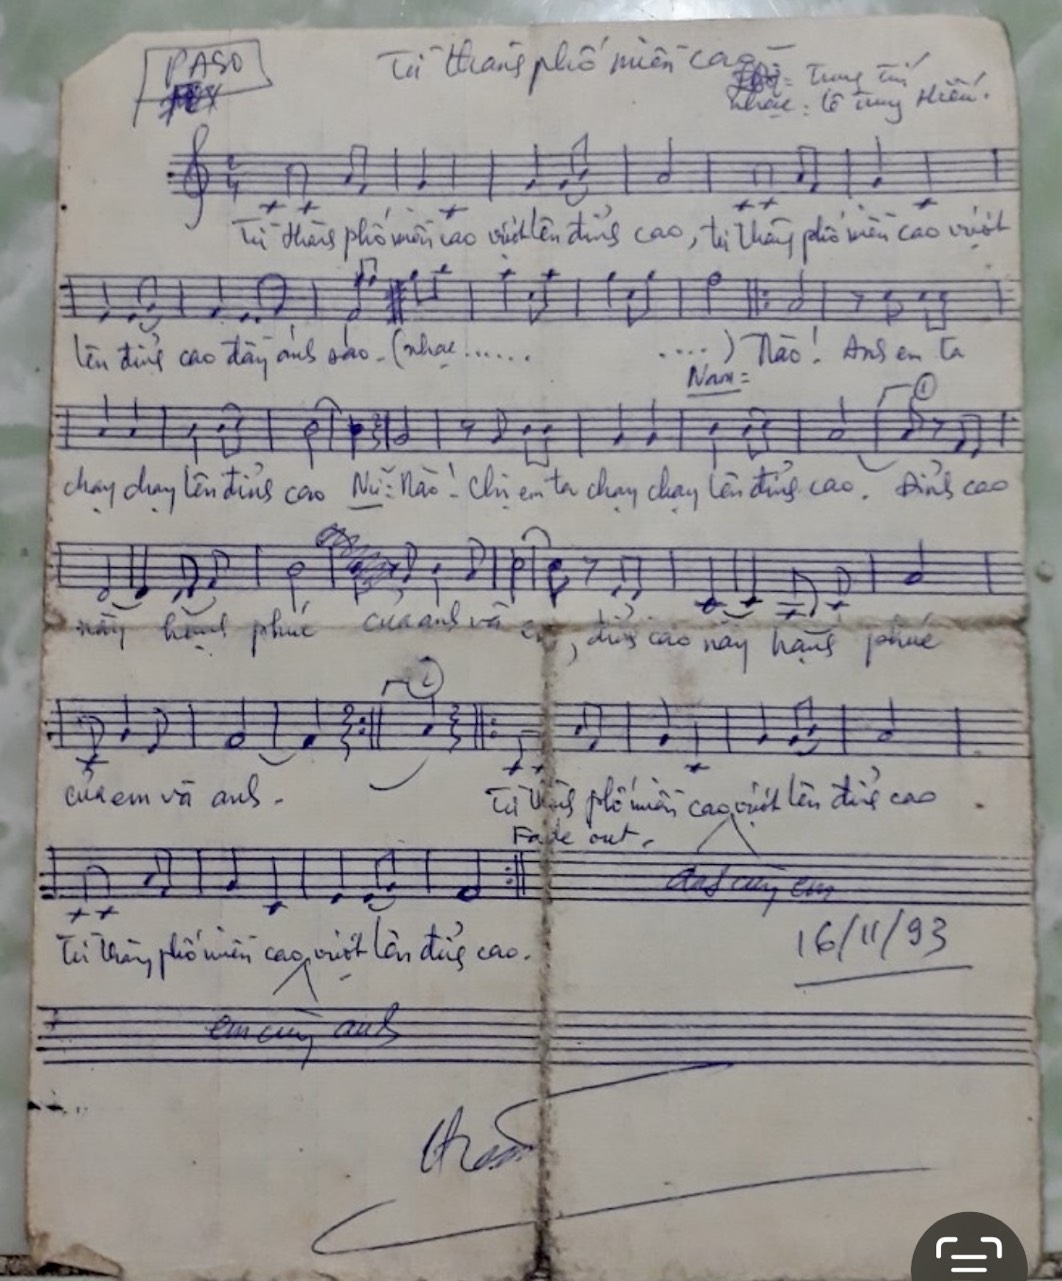 PASO
Từ thành phố miền cao
Lời: Trung Tín
nhạc: Lê Trung Hiếu.
2
4
Từ thành phố miền cao vượt lên đỉnh cao, từ thành phố miền cao vượt
lên đỉnh cao đầy ánh sáo. (nhạc...... ....) Nào! Anh em ta
Nam:
1
chạy chạy lên đỉnh cao Nữ: Nào! Chị em ta chạy chạy lên đỉnh cao. Đỉnh cao
này hạnh phúc của anh và em, đỉnh cao này hạnh phúc
2
của em và anh.
Từ thành phố miền cao vượt lên đỉnh cao
Fade out.
anh cùng em
Từ thành phố miền cao vượt lên đỉnh cao.
16/11/93
em cùng anh